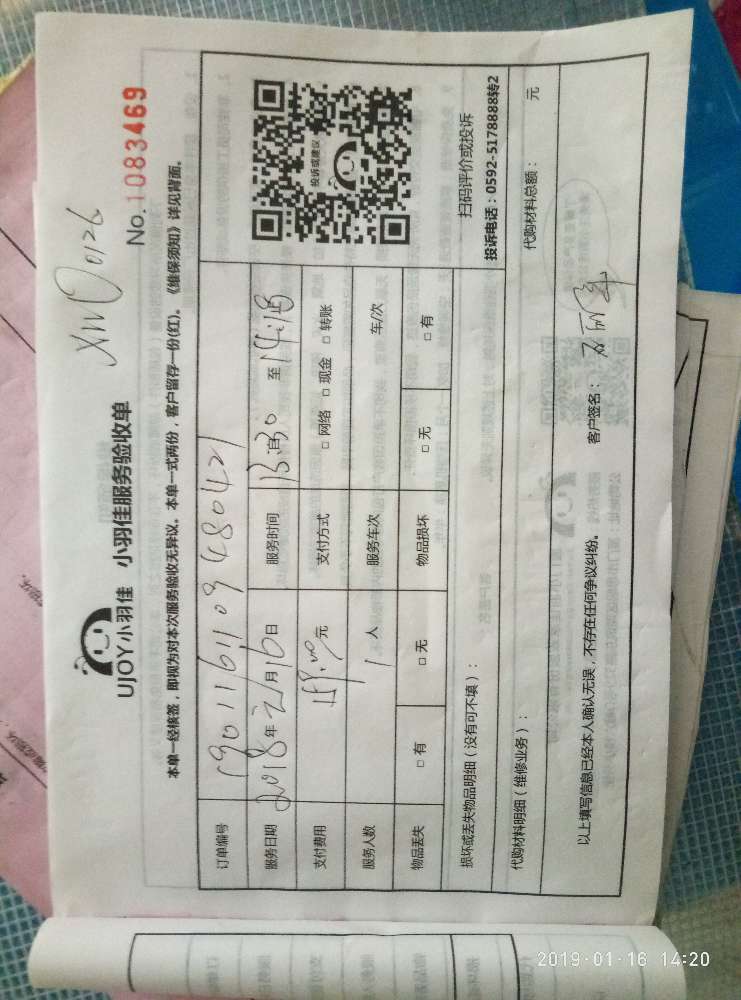 XM 0126
UJOY小羽佳 小羽佳服务验收单
No.1083469
本单一经核签，即视为对本次服务验收无异议。本单一式两份，客户留存一份(红)。《维保须知》详见背面。
订单编号 1901161109480421
服务日期 2018年 月16日 服务时间 13:30 至 14:18
支付费用 159.00元 支付方式 □ 网络 □ 现金 □ 转账
服务人数 1 人 服务车次 车/次
物品丢失 □ 有 □ 无 物品损坏 □ 无 □ 有
投诉或建议
扫码评价或投诉
投诉电话：0592-5178888转2
损坏或丢失物品明细（没有可不填）：
代购材料明细（维修业务）： 代购材料总额： 元
以上填写信息已经本人确认无误，不存在任何争议纠纷。 客户签名：
2019-01-16 14:20